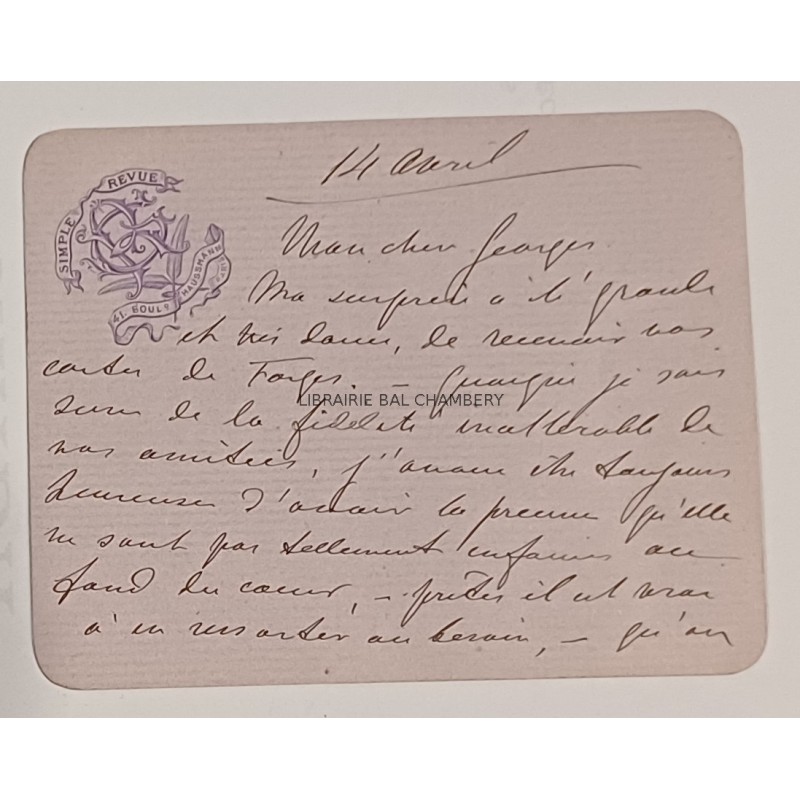 14 avril
SIMPLE REVUE
41 BOULD HAUSSMANN PARIS
Mon cher Georges
Ma surprise a été grande
et très douce, de recevoir vos
cartes de Forges. — Quoique je sois
sure de la fidélité inaltérable de
vos amitiés, j'avoue être toujours
heureuse d'avoir la preuve qu'elle
ne sont pas tellement enfouies au
fond du cœur, — prêtes il est vrai
à en ressortir au besoin, — qu'on
LIBRAIRIE BAL CHAMBERY